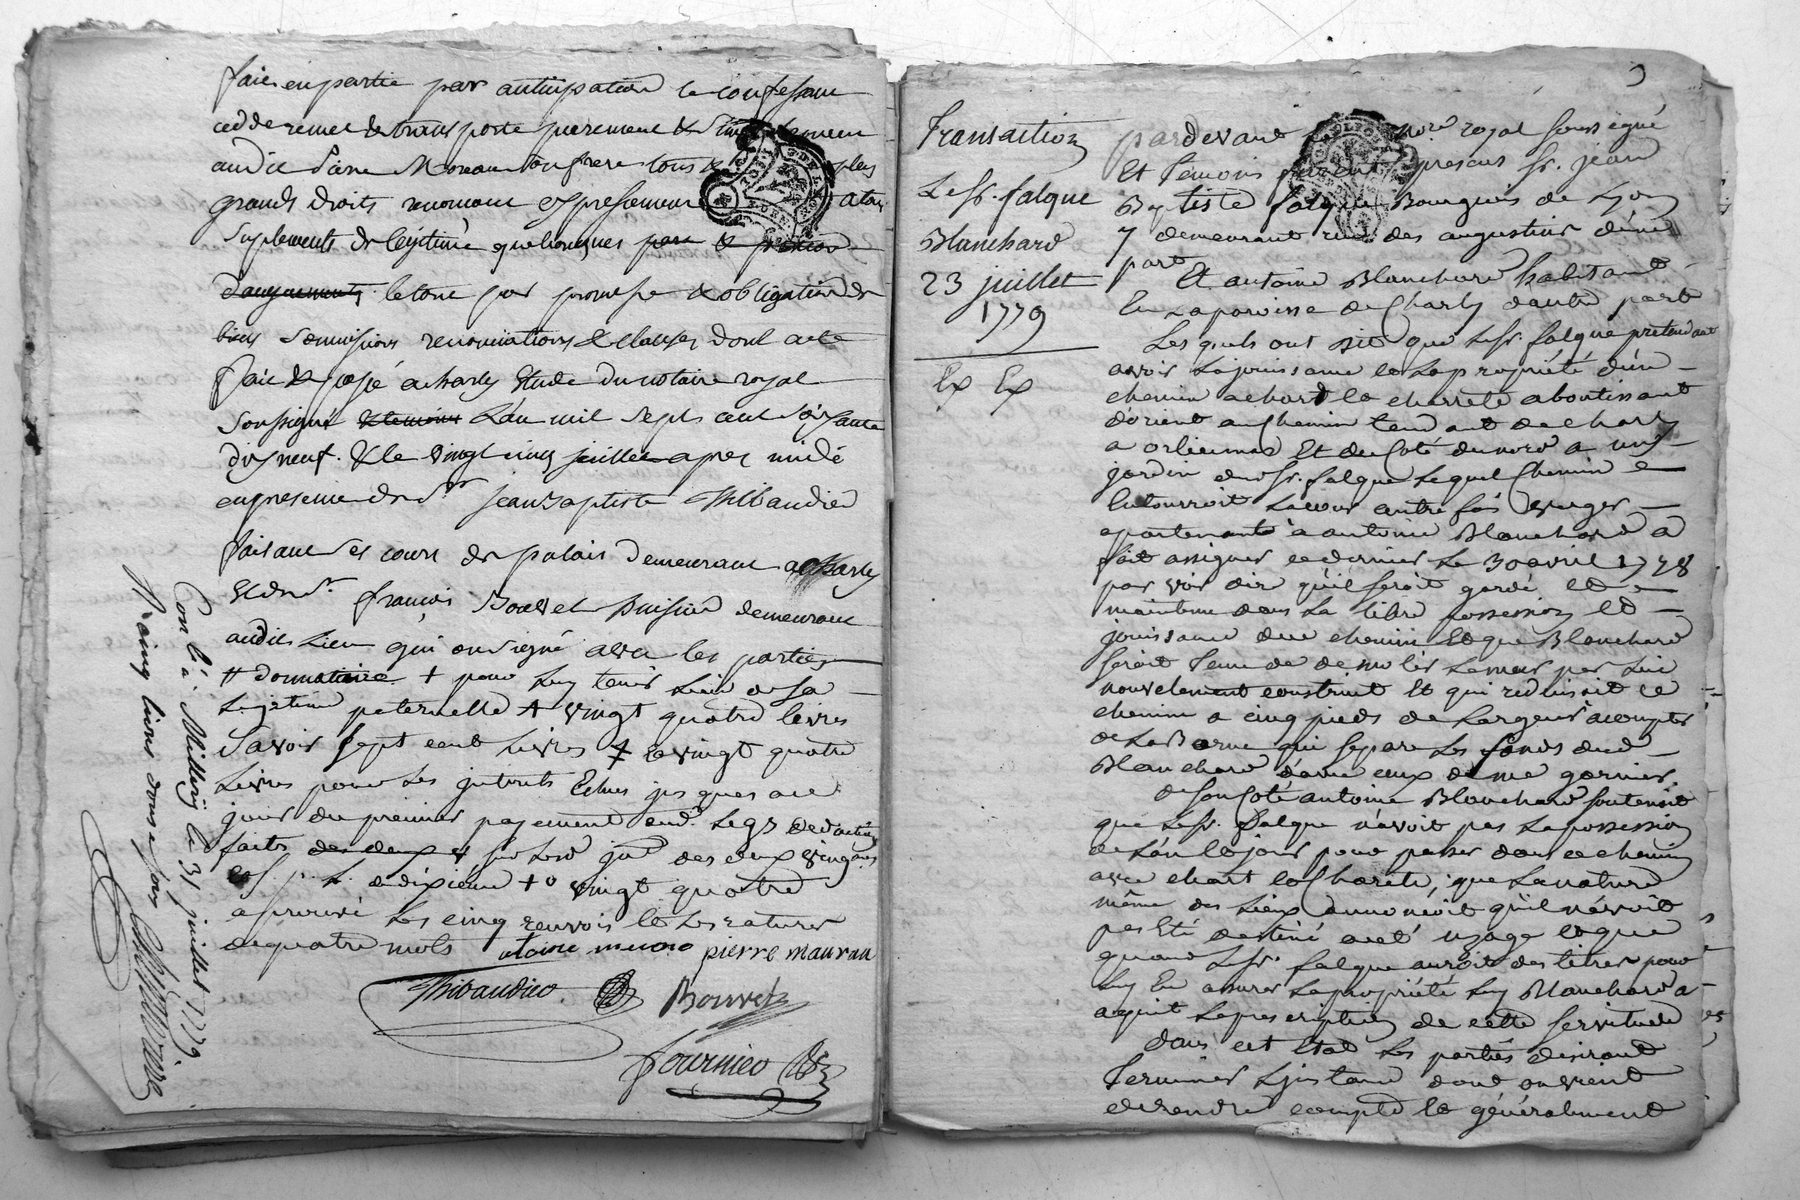 faic en partie par anticipation le confessant
cedde remet & transporte purement & simplement
audit Pierre Moreau son frere tous & plus
grands droits renoncant expressement a tous
suplements de legitime quelconques par & promesse
le tout par promesse & obligation de
biens soumissions renonciations & clauses dont acte
fait & passé a charly Etude du notaire royal
soussigné & temoins L'an mil sept cent soixante
dix neuf. & le vingt cinq juillet apres midi
en presence de sr. jean baptiste Thibaudier
faisant les cours de palais demeurant a charly
& de sr. françois Bouvet huissier demeurant
audit Lieu qui ont signé avec les parties
# donnataire + pour luy tenir Lieu de sa
Legitime paternelle + vingt quatre livres
savoir sept cent Livres + & vingt quatre
Livres pour les interets Echus jusques a ce
jour du premier payement dud. Legs deduction
faite des deux & sur led jour des deux vingtiemes
et s. p. L. a dixieme + vingt quatre
aprouvé Les cinq renvois & les ratures
de quatre mots pierre mauran
Thibaudier Bouvet
fournier
Con lé a Millery le 31 juillet 1779
R cinq livres douze sols
Transaction
Le Sr. falque
Blanchard
23 juillet
1779
Ex Ex
pardevant nore royal soussigné
Et Temoins furent presans Sr. jean
Baptiste falque Bourgeois de Lyon
y demeurant rue des augustins d'une
part
Et antoine Blanchard habitant
En la paroisse de Charly d'autre part
Les quels ont dit que Le Sr. falque pretendant
avoir La jouissance et La propriété d'un
chemin a chart et charrete aboutissant
d'orient au chemin tendant de charly
a orlienas Et du Coté du nord a un
jardin dud Sr. falque Lequel chemin
Entourroit La cour autre fois verger
apartenante à antoine Blanchard a
fait assigner ce dernier Le 30 avril 1778
pour voir dire qu'il seroit gardé et
maintenu dans La libre possession et
jouissance dud chemin Et que Blanchard
seroit Tenu de demolir Le mur par Lui
nouvelement construit Et qui reduisoit ce
chemin a cinq pieds de Largeur a compter
de La Borne qui separe Les fonds dud
Blanchard d'avec ceux de me garnier.
de son Coté antoine Blanchard soutenoit
que Le Sr. falque n'avoit pas La possession
de L'an et jour pour passer dans ce chemin
avec chart et Charete; que La nature
même des Lieux annoncoit qu'il n'avoit
pas Eté destiné a cet usage et que
quand Le Sr. falque auroit des titres pour
luy En assurer La propriété Luy Blanchard a-
aquit La prescription de cette servitude
dans cet Etat Les parties desirant
Terminer L'instance dont on vient
de rendre compte et généralement